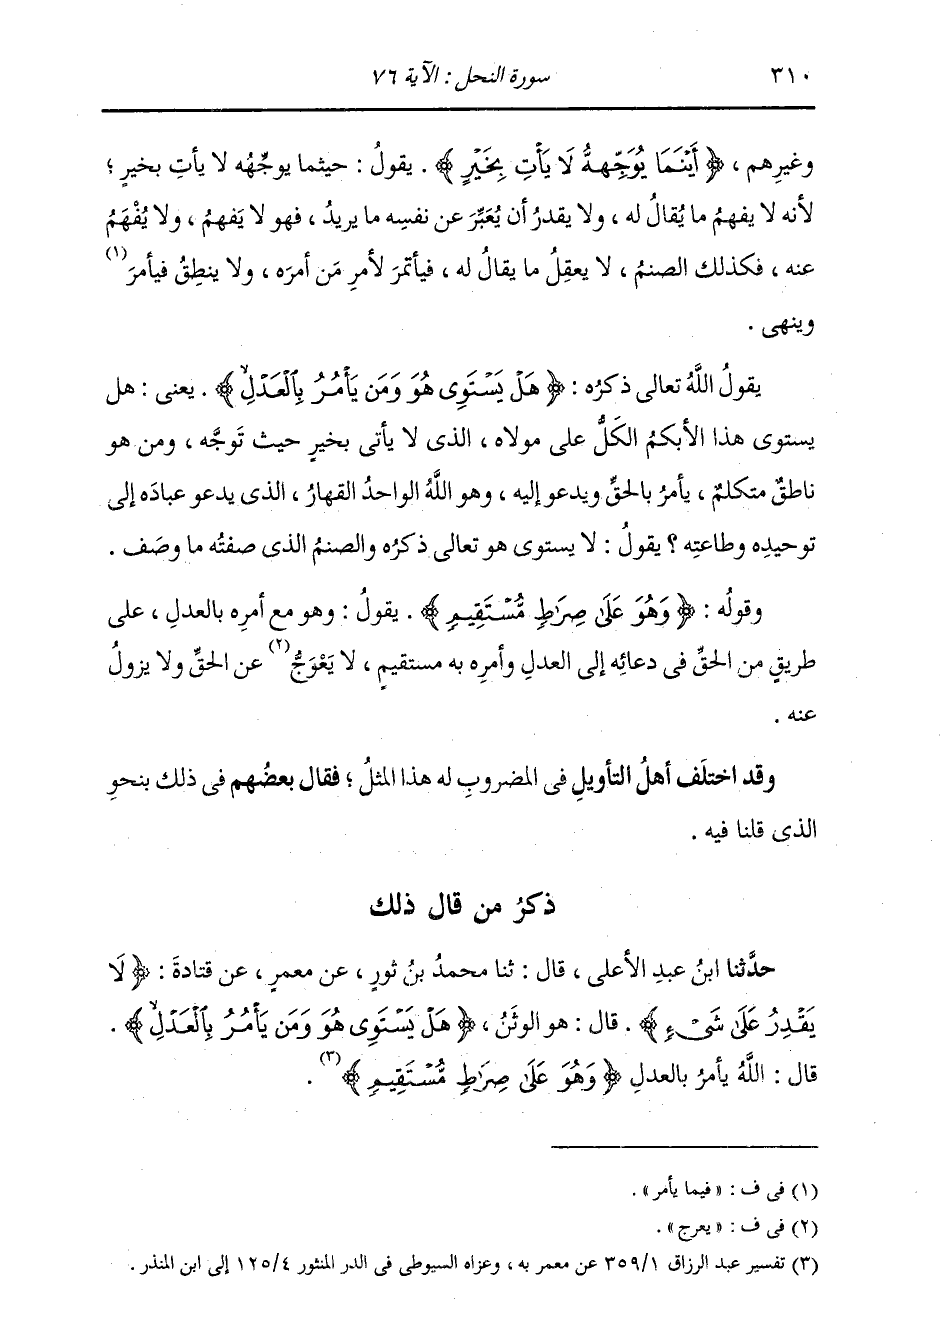 ٣١٠ سورة النحل : الآية ٧٦
وغيرِهم ، ﴿ أَيْنَمَا يُوَجِّههُّ لَا يَأْتِ بِخَيْرٍ ﴾ . يقولُ : حيثما يوجِّهُه لا يأتِ بخيرٍ ؛
لأنه لا يفهمُ ما يُقالُ له ، ولا يقدرُ أن يُعَبِّرَ عن نفسِه ما يريدُ ، فهو لا يَفهمُ ، ولا يُفْهَمُ
عنه ، فكذلك الصنمُ ، لا يعقِلُ ما يقالُ له ، فيأتمرَ لأمرِ مَن أمرَه ، ولا ينطِقُ فيأمرَ(١)
وينهى .
يقولُ اللَّهُ تعالى ذكرُه : ﴿ هَلْ يَسْتَوِى هُوَ وَمَن يَأْمُرُ بِٱلْعَدْلِۙ ﴾ . يعنى : هل
يستوى هذا الأبكمُ الكَلُّ على مولاه ، الذى لا يأتى بخيرٍ حيث تَوجَّه ، ومن هو
ناطقٌ متكلمٌ ، يأمرُ بالحقِّ ويدعو إليه ، وهو اللَّهُ الواحدُ القهارُ ، الذى يدعو عبادَه إلى
توحيدِه وطاعتِه ؟ يقولُ : لا يستوى هو تعالى ذكرُه والصنمُ الذى صفتُه ما وصَف .
وقولُه : ﴿ وَهُوَ عَلَىٰ صِرَٰطٍ مُّسْتَقِيمٍ ﴾ . يقولُ : وهو مع أمرِه بالعدلِ ، على
طريقٍ من الحقِّ فى دعائِه إلى العدلِ وأمرِه به مستقيمٍ ، لا يَعْوَجُّ(٢) عن الحقِّ ولا يزولُ
عنه .
وقد اختلَف أهلُ التأويلِ فى المضروبِ له هذا المثلُ ؛ فقال بعضُهم فى ذلك بنحوِ
الذى قلنا فيه .
ذكرُ من قال ذلك
حدَّثنا ابنُ عبدِ الأعلى ، قال : ثنا محمدُ بنُ ثورٍ ، عن معمرٍ ، عن قتادةَ : ﴿ لَا
يَقْدِرُ عَلَىٰ شَىْءٍ ﴾ . قال : هو الوثَنُ ، ﴿ هَلْ يَسْتَوِى هُوَ وَمَن يَأْمُرُ بِٱلْعَدْلِۙ ﴾ .
قال : اللَّهُ يأمرُ بالعدلِ ﴿ وَهُوَ عَلَىٰ صِرَٰطٍ مُّسْتَقِيمٍ ﴾(٣) .
(١) فى ف : « فيما يأمر » .
(٢) فى ف : « يعرج » .
(٣) تفسير عبد الرزاق ٣٥٩/١ عن معمر به ، وعزاه السيوطى فى الدر المنثور ١٢٥/٤ إلى ابن المنذر .